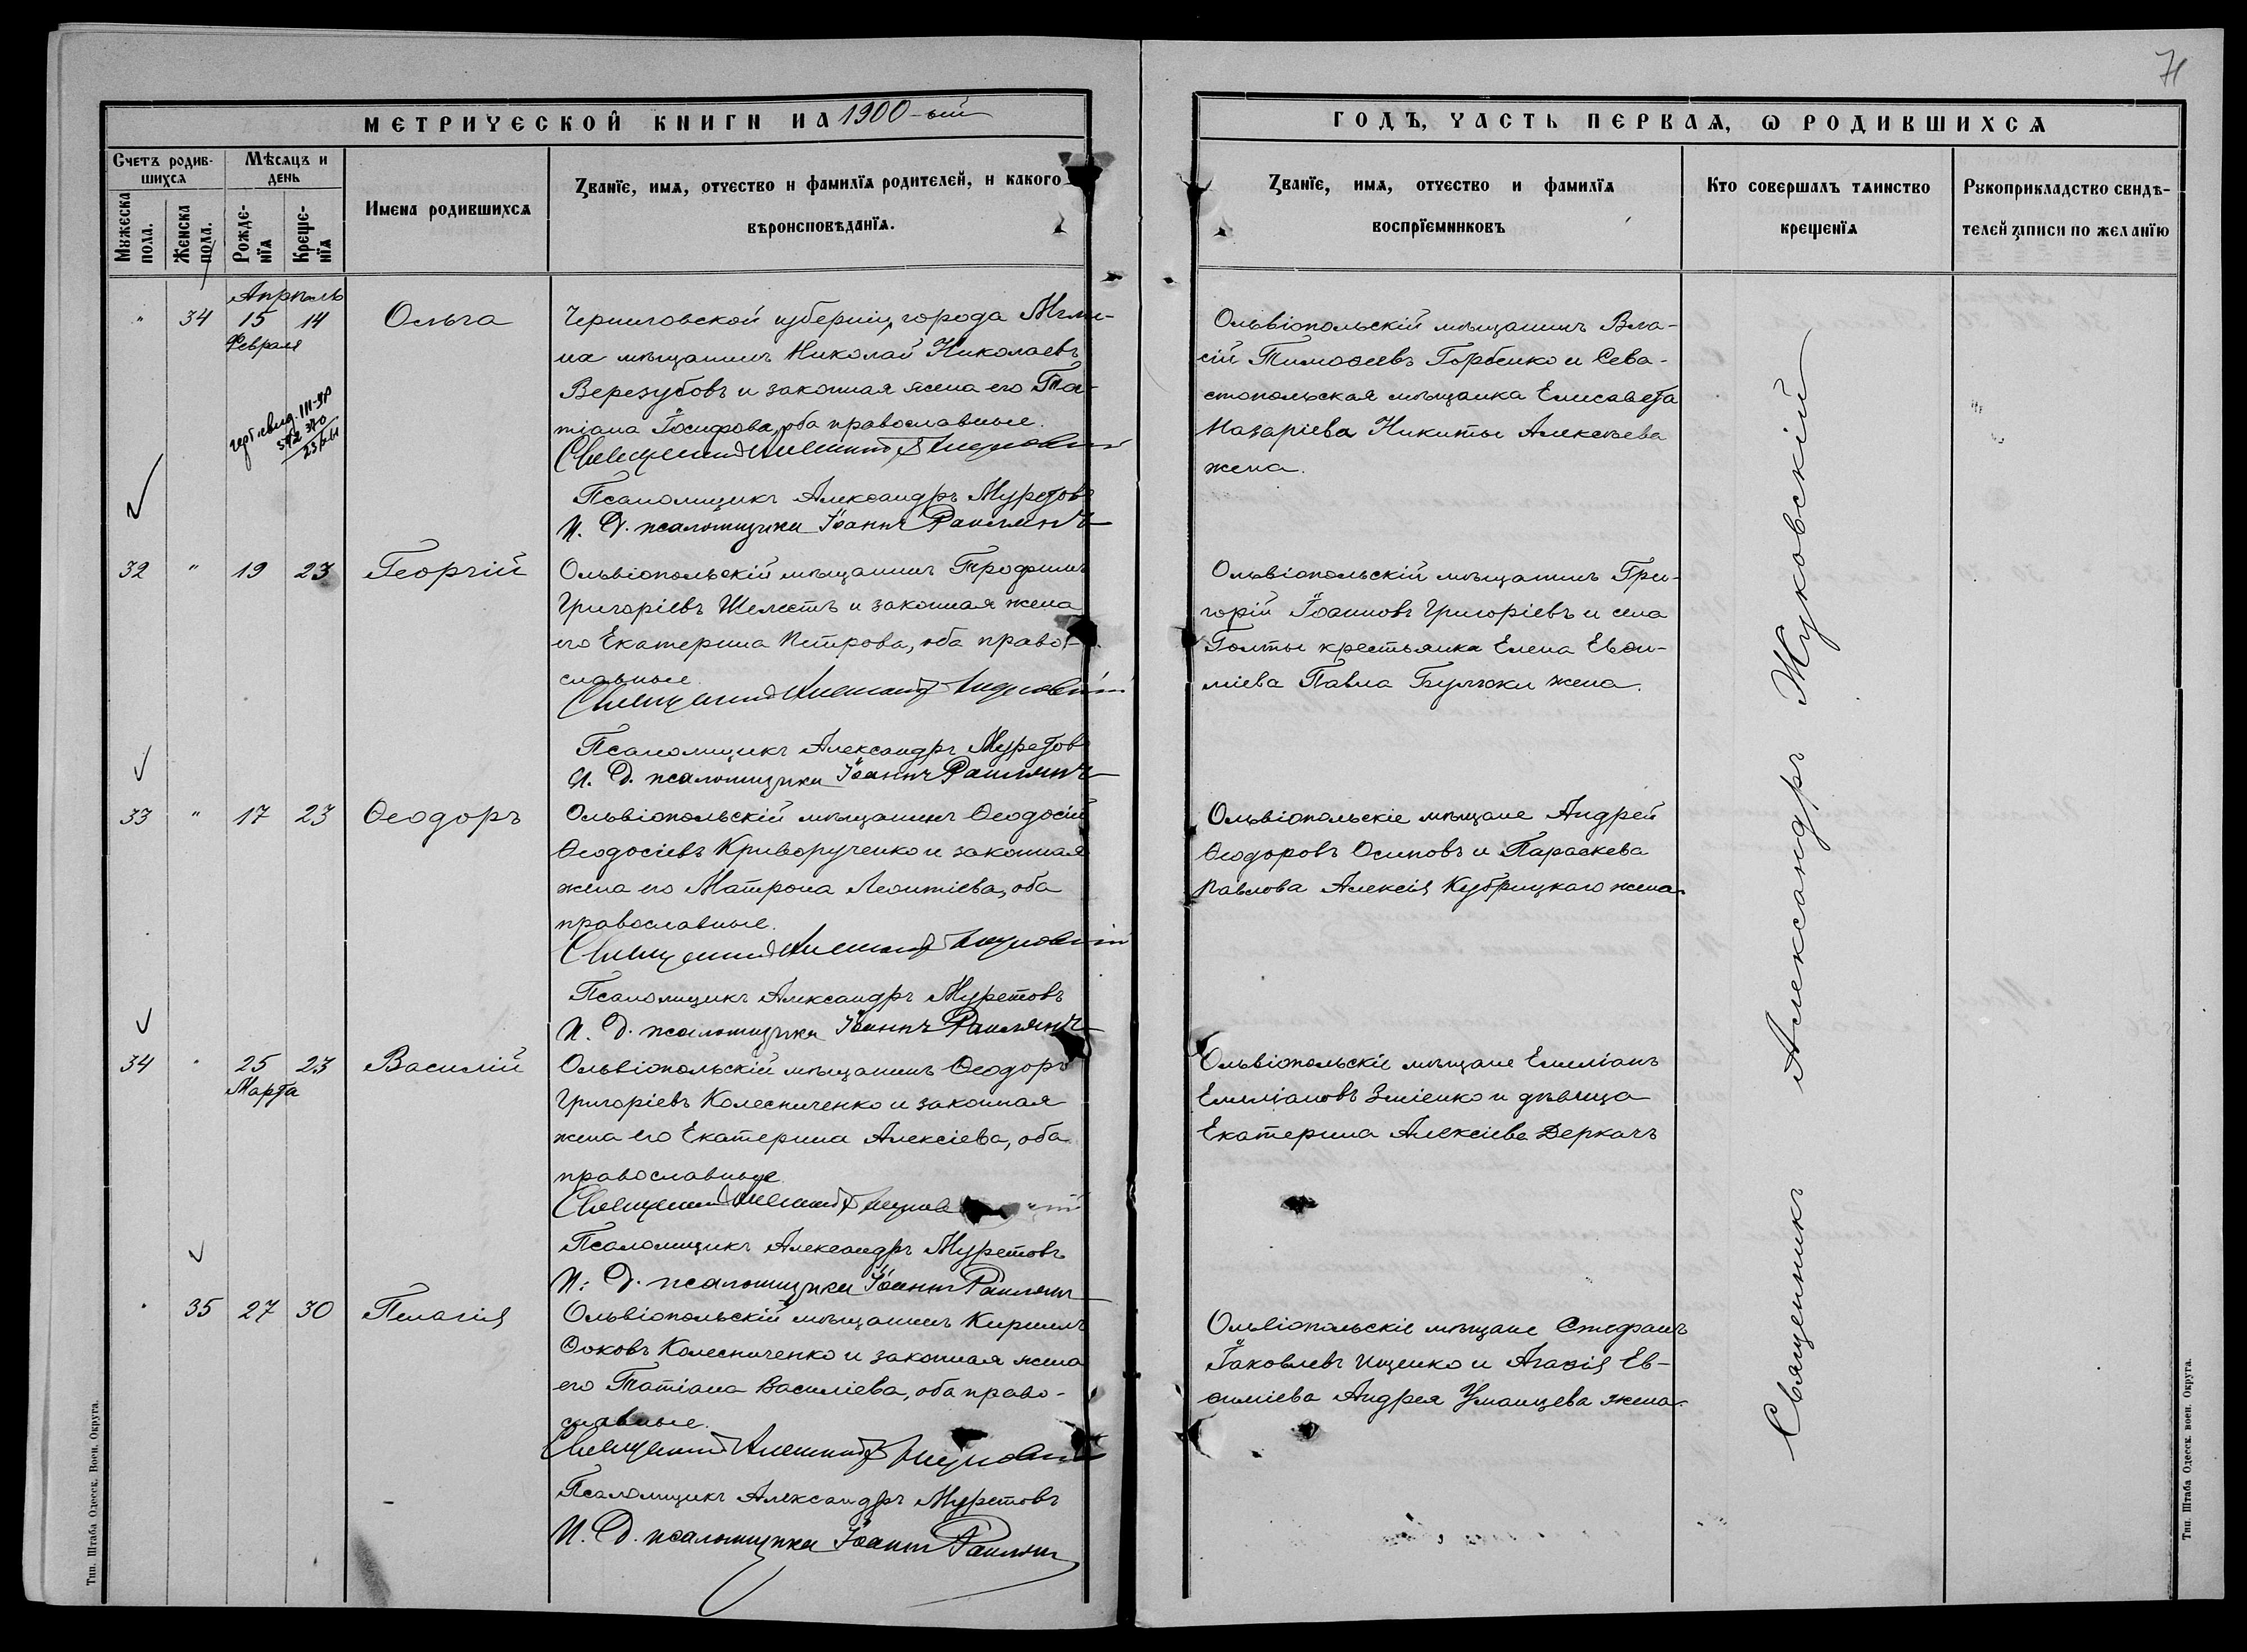 71
МЕТРИЧЕСКОЙ КНИГИ НА 1900-ый
ГОДЪ, ЧАСТЬ ПЕРВАЯ, Ѡ РОДИВШИХСЯ
Счетъ родив-
шихся
Мѣсяцъ и
день
Мужеска
пола.
Женска
пола.
Рожде-
нїя
Креще-
нїя
Имена родившихся
Званїе, имя, отчество и фамилїя родителей, и какого
вѣроисповѣданїя.
Званїе, имя, отчество и фамилїя
воспрїемниковъ
Кто совершалъ таинство
крещенїя
Рукоприкладство свидѣ-
телей записи по желанїю
Апрѣль
" 34 15 14 Ольга
Февраля
Черниговской губерніи, города Мгли-
на мѣщанинъ Николай Николаевъ
Верезубовъ и законная жена его Та-
тіана Іосифова, оба православные.
Священникъ Александръ Жуковскій
Псаломщикъ Александръ Муретовъ
И. Д. псаломщика Іоаннъ
Ольвіопольскій мѣщанинъ Вла-
сій Тимоѳеевъ Горбенко и Сева-
стопольская мѣщанка Елисавета
Назаріева Никиты Алексѣева
жена.
32 " 19 23 Георгій
Ольвіопольскій мѣщанинъ Трофимъ
Григоріевъ Шелестъ и законная жена
его Екатерина Петрова, оба право-
славные.
Священникъ Александръ Жуковскій
Псаломщикъ Александръ Муретовъ
И. Д. псаломщика Іоаннъ
Ольвіопольскій мѣщанинъ Гри-
горій Іоанновъ Григоріевъ и села
Голты крестьянка Елена Евѳи-
міева Павла жена.
33 " 17 23 Ѳеодоръ
Ольвіопольскій мѣщанинъ Ѳеодосій
Ѳеодосіевъ Криворученко и законная
жена его Матрона Леонтіева, оба
православные.
Священникъ Александръ Жуковскій
Псаломщикъ Александръ Муретовъ
И. Д. псаломщика Іоаннъ
Ольвіопольскіе мѣщане Андрей
Ѳеодоровъ Осиповъ и Параскева
Павлова Алексія Кубрицкаго жена.
34 " 25 23 Василій
Марта
Ольвіопольскій мѣщанинъ Ѳеодоръ
Григоріевъ Колесниченко и законная
жена его Екатерина Алексіева, оба
православные
Священникъ Александръ Жуковскій
Псаломщикъ Александръ Муретовъ
И. Д. псаломщика Іоаннъ
Ольвіопольскіе мѣщане Емиліанъ
Емиліановъ Зміенко и дѣвица
Екатерина Алексіева Деркачъ
" 35 27 30 Пелагія
Ольвіопольскій мѣщанинъ Кириллъ
Ѳоковъ Колесниченко и законная жена
его Татіана Василіева, оба право-
славные.
Священникъ Александръ Жуковскій
Псаломщикъ Александръ Муретовъ
И. Д. псаломщика Іоаннъ
Ольвіопольскіе мѣщане Стефанъ
Іаковлевъ Ищенко и Агаѳія Ев-
ѳиміева Андрея Уманцева жена.
Священникъ Александръ Жуковскій
Тип. Штаба Одесск. Воен. Округа.
Тип. Штаба Одесск. воен. Округа.